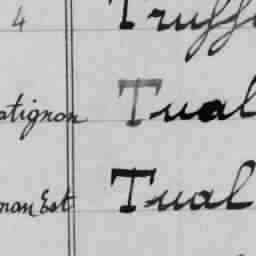 4 Truff
atignon Tual
nan Est Tual